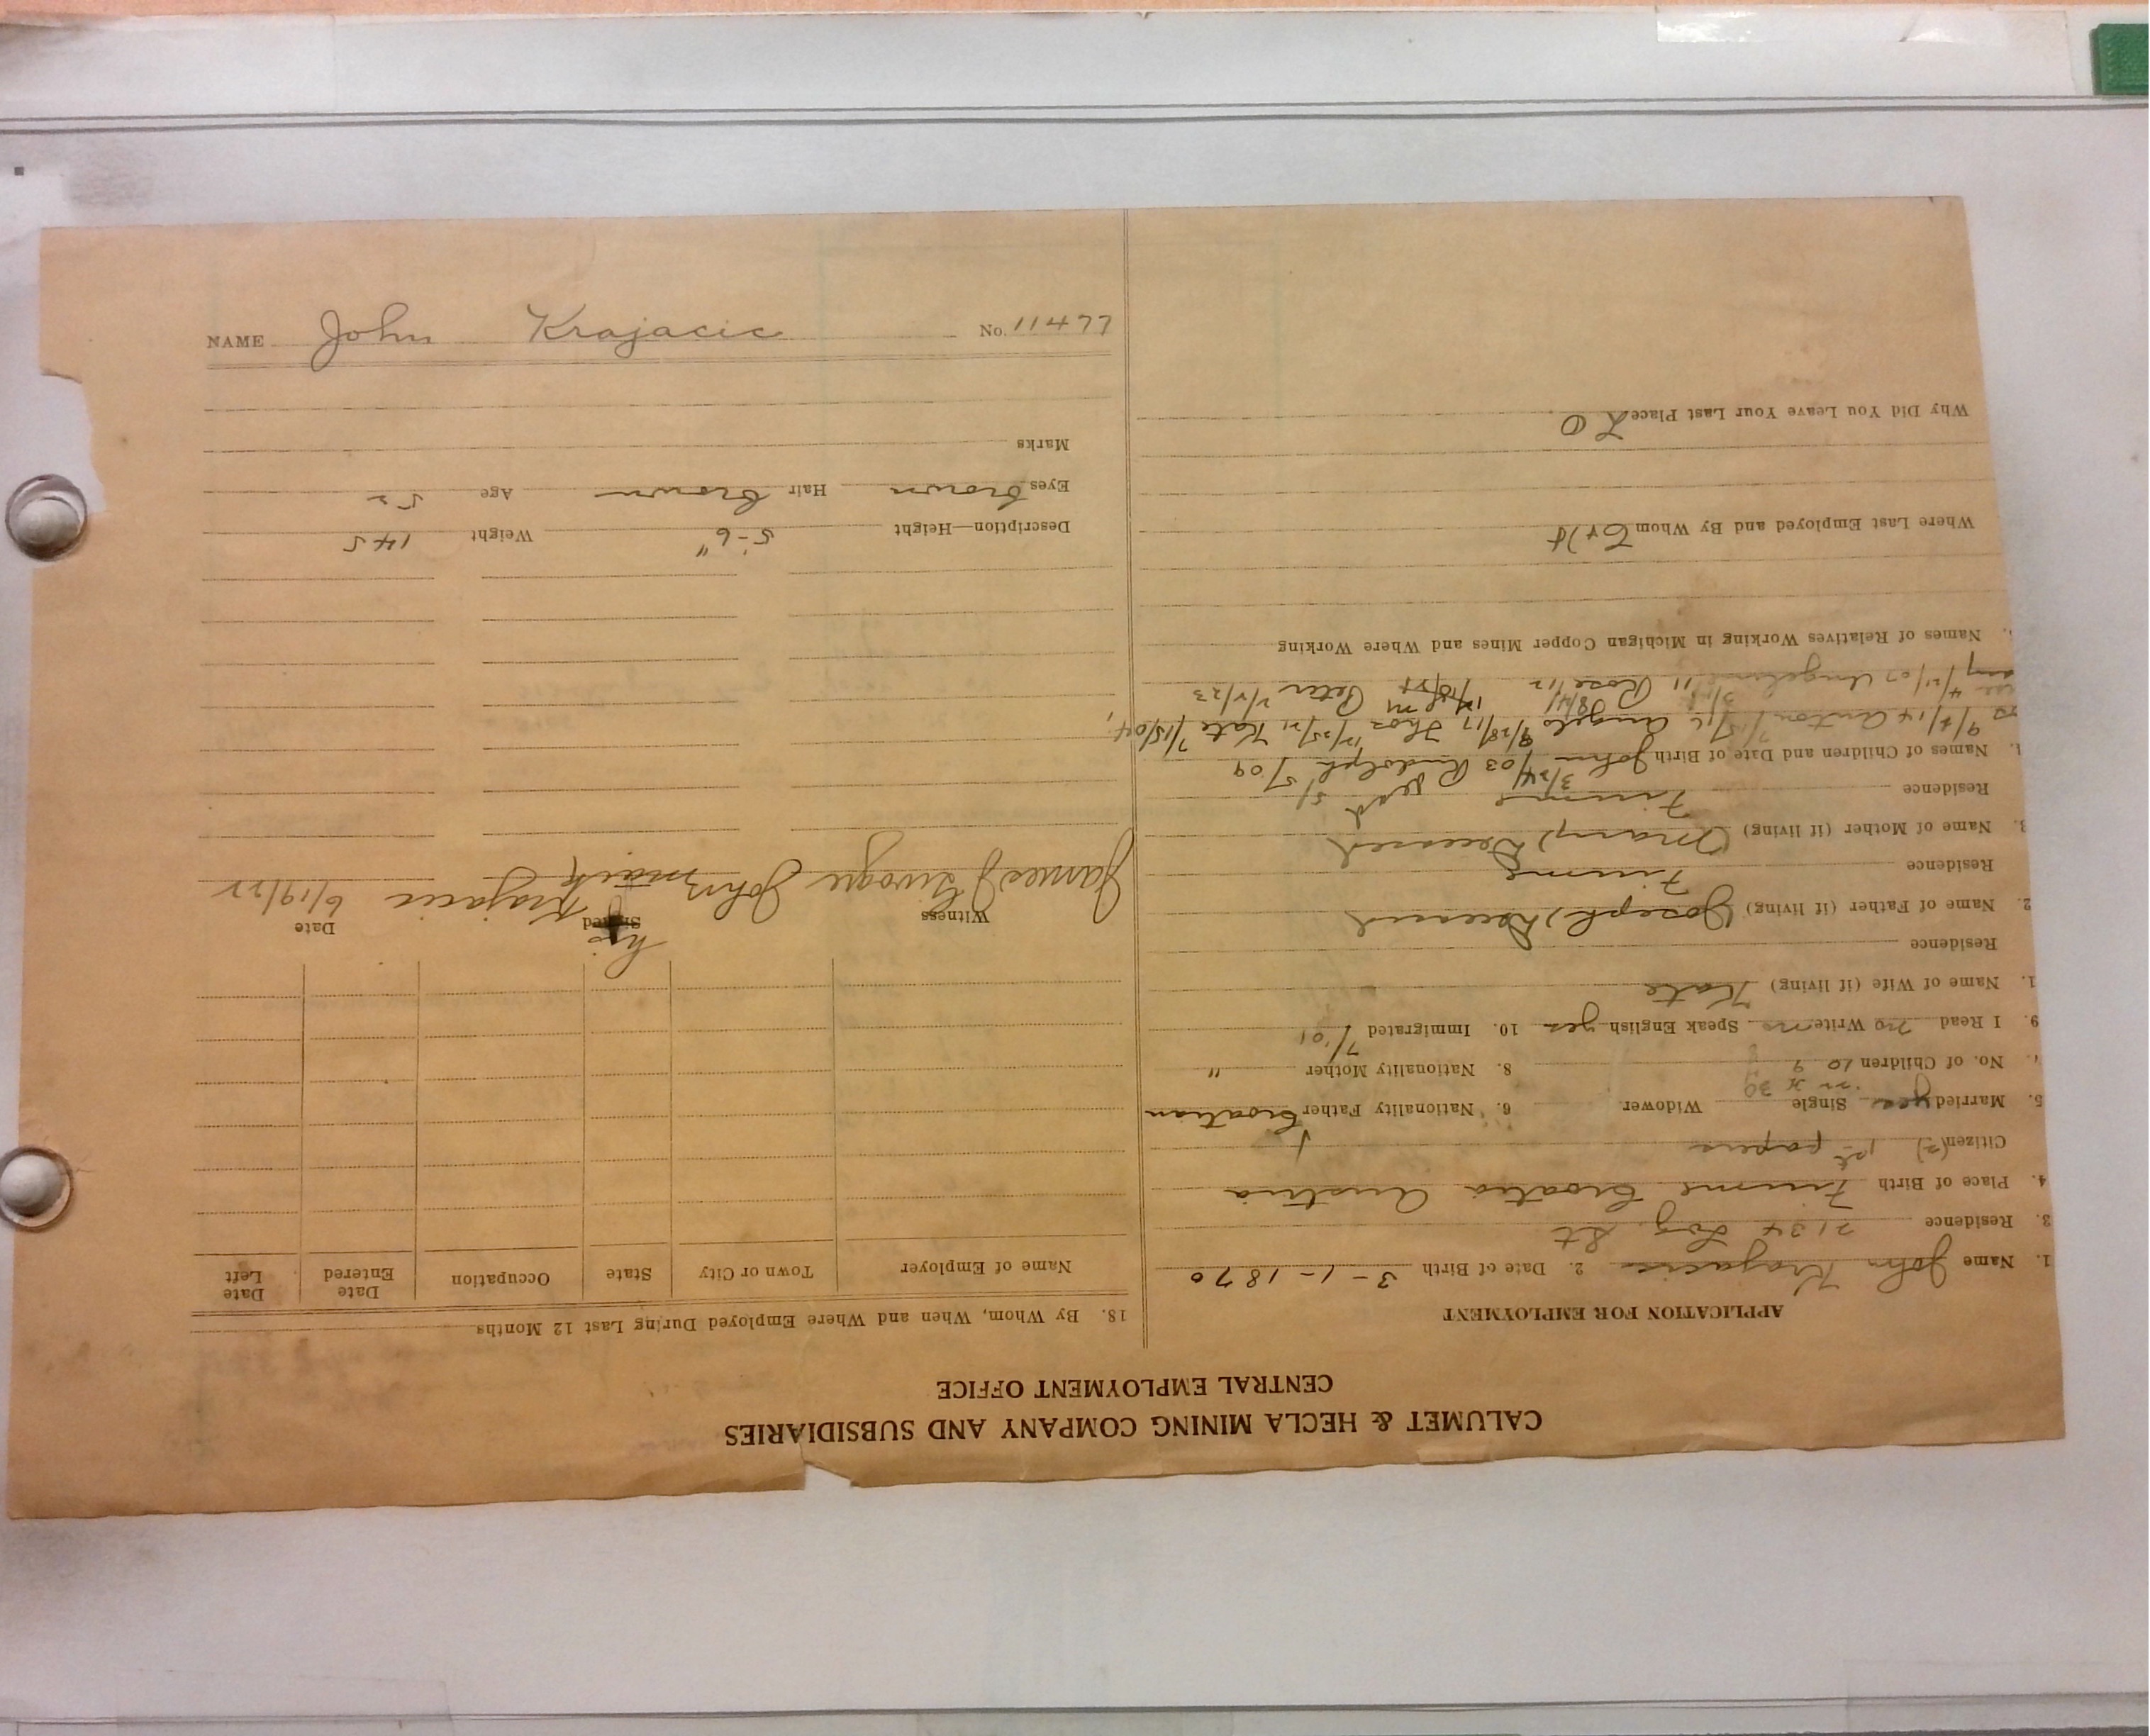 CALUMET & HECLA MINING COMPANY AND SUBSIDIARIES
CENTRAL EMPLOYMENT OFFICE
APPLICATION FOR EMPLOYMENT
1. Name John Krajacic 2. Date of Birth 3-1-1870
3. Residence 2134 Log. St
4. Place of Birth Fiume Croatia Austria
Citizen (2) 1st papers
5. Married yes Single Widower 6. Nationality Father Croatian
No. of Children 10 9 8. Nationality Mother "
9. I Read no Write no Speak English yes 10. Immigrated 7/01
1. Name of Wife (if living) Kate
Residence
2. Name of Father (if living) (Joseph) Deceased
Residence Fiume
3. Name of Mother (if living) (Mary) Deceased
Residence Fiume
Names of Children and Date of Birth John 3/24/03 Rudolph 5/5/09
9/8/14 Anton 7/15/16 Angelo 9/28/17 Thos 12/25/21 Kate 7/15/04,
4/21/07 Angeline 11 Rose 8/4/12 Peter 2/2/23
Names of Relatives Working in Michigan Copper Mines and Where Working
Where Last Employed and By Whom
Why Did You Leave Your Last Place L O
18. By Whom, When and Where Employed During Last 12 Months
Name of Employer Town or City State Occupation Date Entered Date Left
Witness Signed Date
his
James J John Krajacic 6/19/22
mark
Description—Height 5-6" Weight 145
Eyes brown Hair brown Age 52
Marks
NAME John Krajacic No. 11477